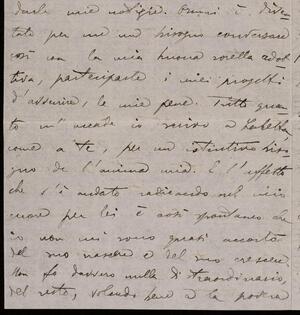 darle mie notizie. Ormai è dive-
tato per me un bisogno conversare
così con la mia buona sorella adot
tiva, parteciparle i miei progetti
d'avvenire, le mie pene. Tutto quan
to m'accade io scrivo a
come a te, per un istintivo biso
gno de l'anima mia. E l'affetto
che s'è andato radicando nel mio
cuore per lei è così spontaneo che
io non mi sono quasi accorto
del suo nascere e del suo crescere.
Non fo davvero nulla di straordinario,
del resto, volendo bene a la